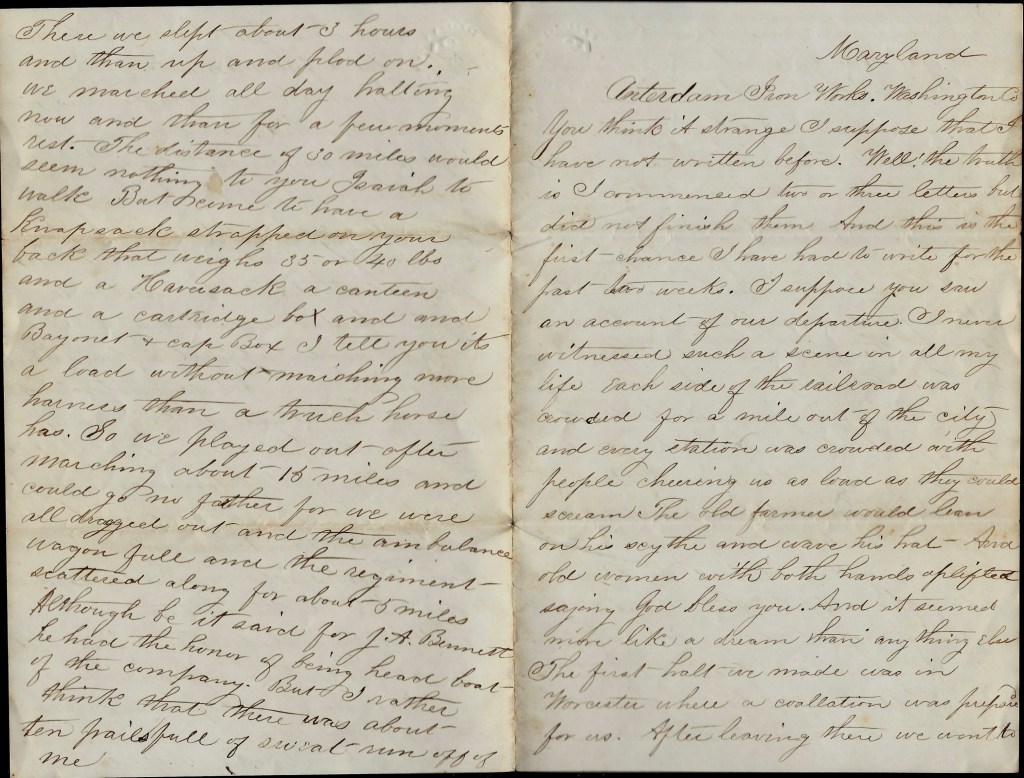 There we slept about 3 hours
and than up and plod on.
we marched all day halting
now and than for a few moments
rest. The distance of 30 miles would
seem nothing to you Isaiah to
walk But come to have a
Knapsack strapped on your
back that weighs 35 or 40 lbs
and a Haversack a canteen
and a cartridge box and and
Bayonet + cap Box I tell you its
a load without marching more
harness than a truck horse
has. So we played out after
marching about 15 miles and
could go no farther for we were
all dragged out and the ambulance
wagon full and the regiment
scattered along for about 5 miles
Although be it said for J. A. Bennett
he had the honor of being head boat
of the company. But I rather
think that there was about
ten pails full of sweat run off of
me
Maryland
Anterdam Iron Works. Washington Co
You think it strange I suppose that I
have not written before. Well! the truth
is I commenced two or three letters but
did not finish them And this is the
first chance I have had to write for the
past two weeks. I suppose you saw
an account of our departure. I never
witnessed such a scene in all my
life Each side of the railroad was
crowded for a mile out of the city
and every station was crowded with
people cheering us as loud as they could
scream The old farmer would lean
on his scythe and wave his hat - And
old women with both hands uplifted
sajong God bless you. And it seemed
more like a dream than any thing Else
The first halt we made was in
Worcester where a coallation was prepared
for us. After leaving there we went to